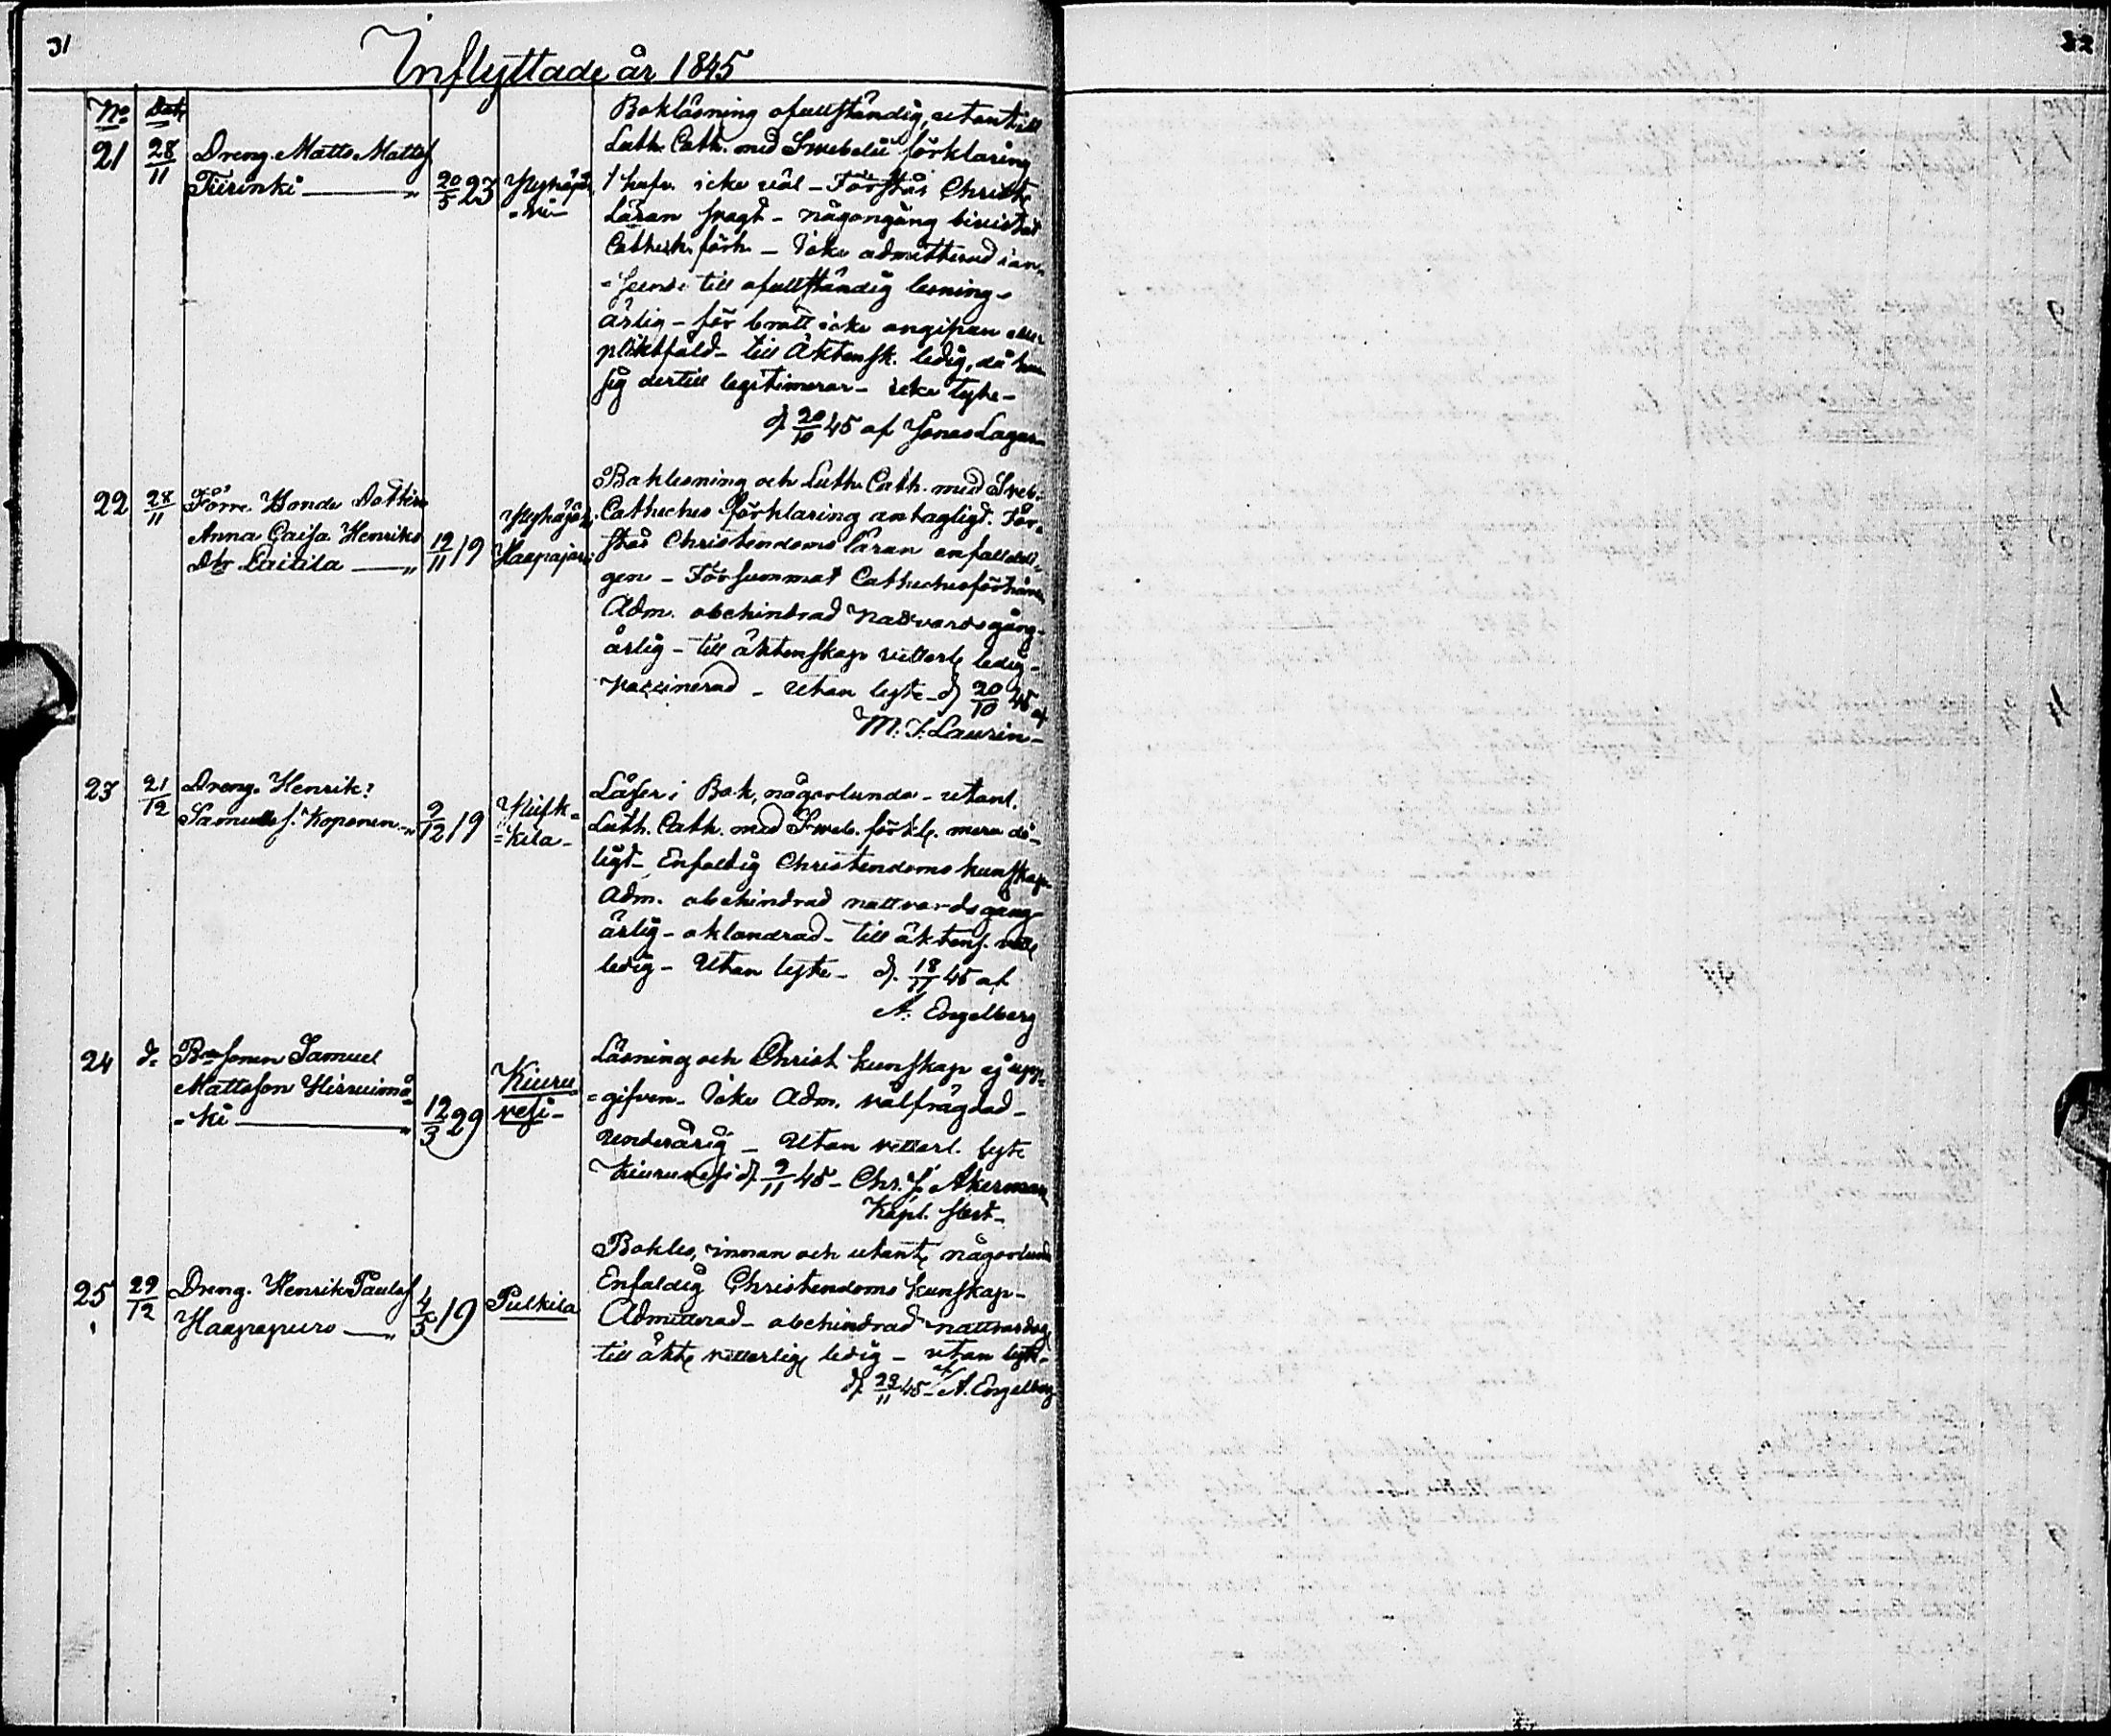 31
Inflyttade år 1845
No Dat.
21 28/11 Dreng. Matts Mattsf
Tiirinki 20/5 23
Bokläsning ofullständig, utantill
Luth. Cath. med Swebelii förklaring
icke väl - Förstår Christ.
Läran svagt - någongång bivistat
Cathech. förh. - Icke admitterad i an-
=seende till ofullständig lesning -
ärlig - för brott icke angifven eller
pliktfäld - till Äktensk. ledig, då han
sig dertill legitimerar - icke lyte -
d. 20/10 45 af Jonas Lagus
22 28/11 Förre Bonde Dottren
Anna Caisa Henriks
Dtr Laitila 19/11 19 Haapajärvi
Boklesning och Luth. Cath. med Sveb.
Catheches förklaring antagligt. För-
står Christendoms läran enfaldeli-
gen - Försummat Cathechesförhören
Adm. obehindrad Nadvardsgång -
ärlig - till äktenskap vetterl. ledig -
Vaccinerad - Utan lyte - d. 20/10 45 af
M. J. Laurin -
23 21/12 Dreng. Henrik
Samuels s. Koponen 9/12 19
=kila -
Läser i Bok, någorlunda - utant.
Luth. Cath. med Sweb. förkl. mera då-
ligt - Enfaldig Christendoms kunskap
Adm. obehindrad nattvardsgång
ärlig - oklandrad - till äktens. vett.
ledig - Utan lyte - d. 18/11 45 af
A. Engelberg
24 d:o Bsonen Samuel
Mattsson Hirvimä-
-ki 12/3 29 Kiuru
vesi -
Läsning och Christ. kunskap ej upp-
=gifven - Icke Adm. välfrägdad -
Underårig - Utan vetterl. lyte
Kiuruvesi d. 9/11 45 - Chr. J. Akerman
Kapl. 
25 29/12 Dreng. Henrik Paulsf
Haapapuro 4/5 19 Pulkila
Bokles, innan och utant. någorlunda
Enfaldig Christendoms kunskap -
Admitterad - obehindrad nattvardsg.
till äkt. vetterlig. ledig - utan lyte -
d. 23/11 45 - af A. Engelberg
32